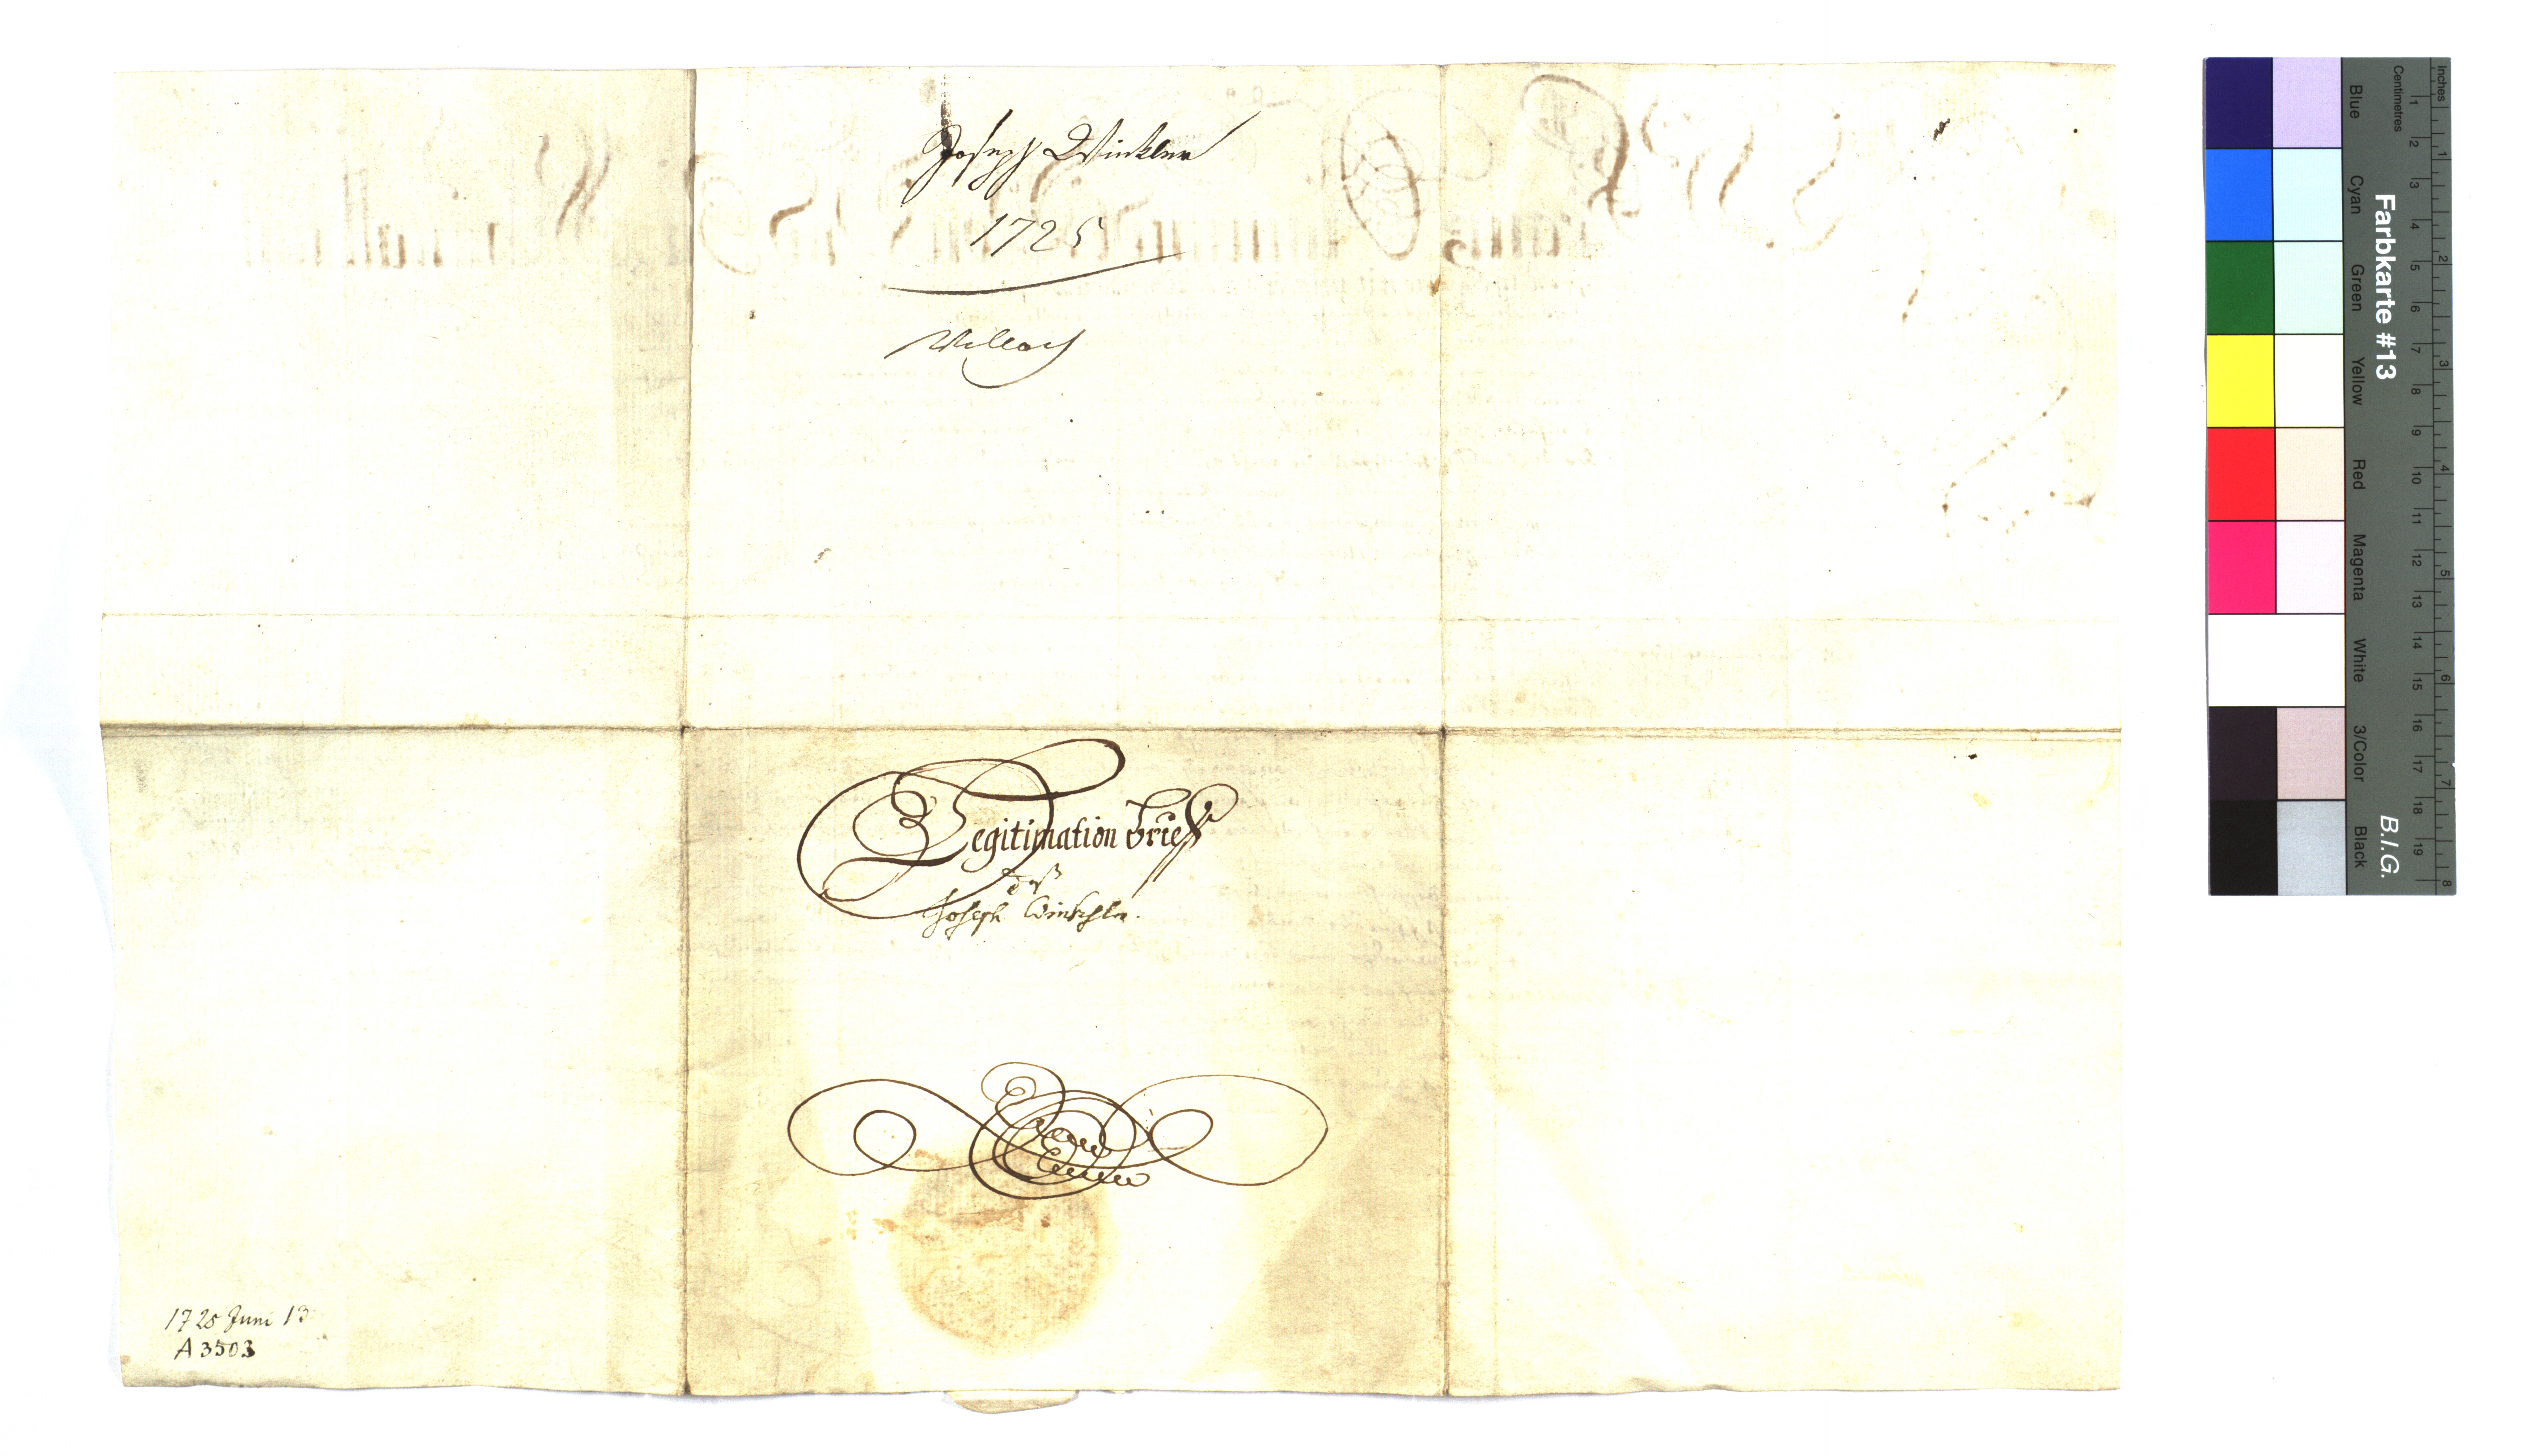 Joseph Winkler
1725
Villach
Legitimation brieff
deß
Joseph Winkhler.
1725 Juni 13
A 3503
Inches
Centimetres
1 2 3 4 5 6 7 8 9 10 11 12 13 14 15 16 17 18 19
1 2 3 4 5 6 7 8
Farbkarte #13
B.I.G.
Blue
Cyan
Green
Yellow
Red
Magenta
White
3/Color
Black